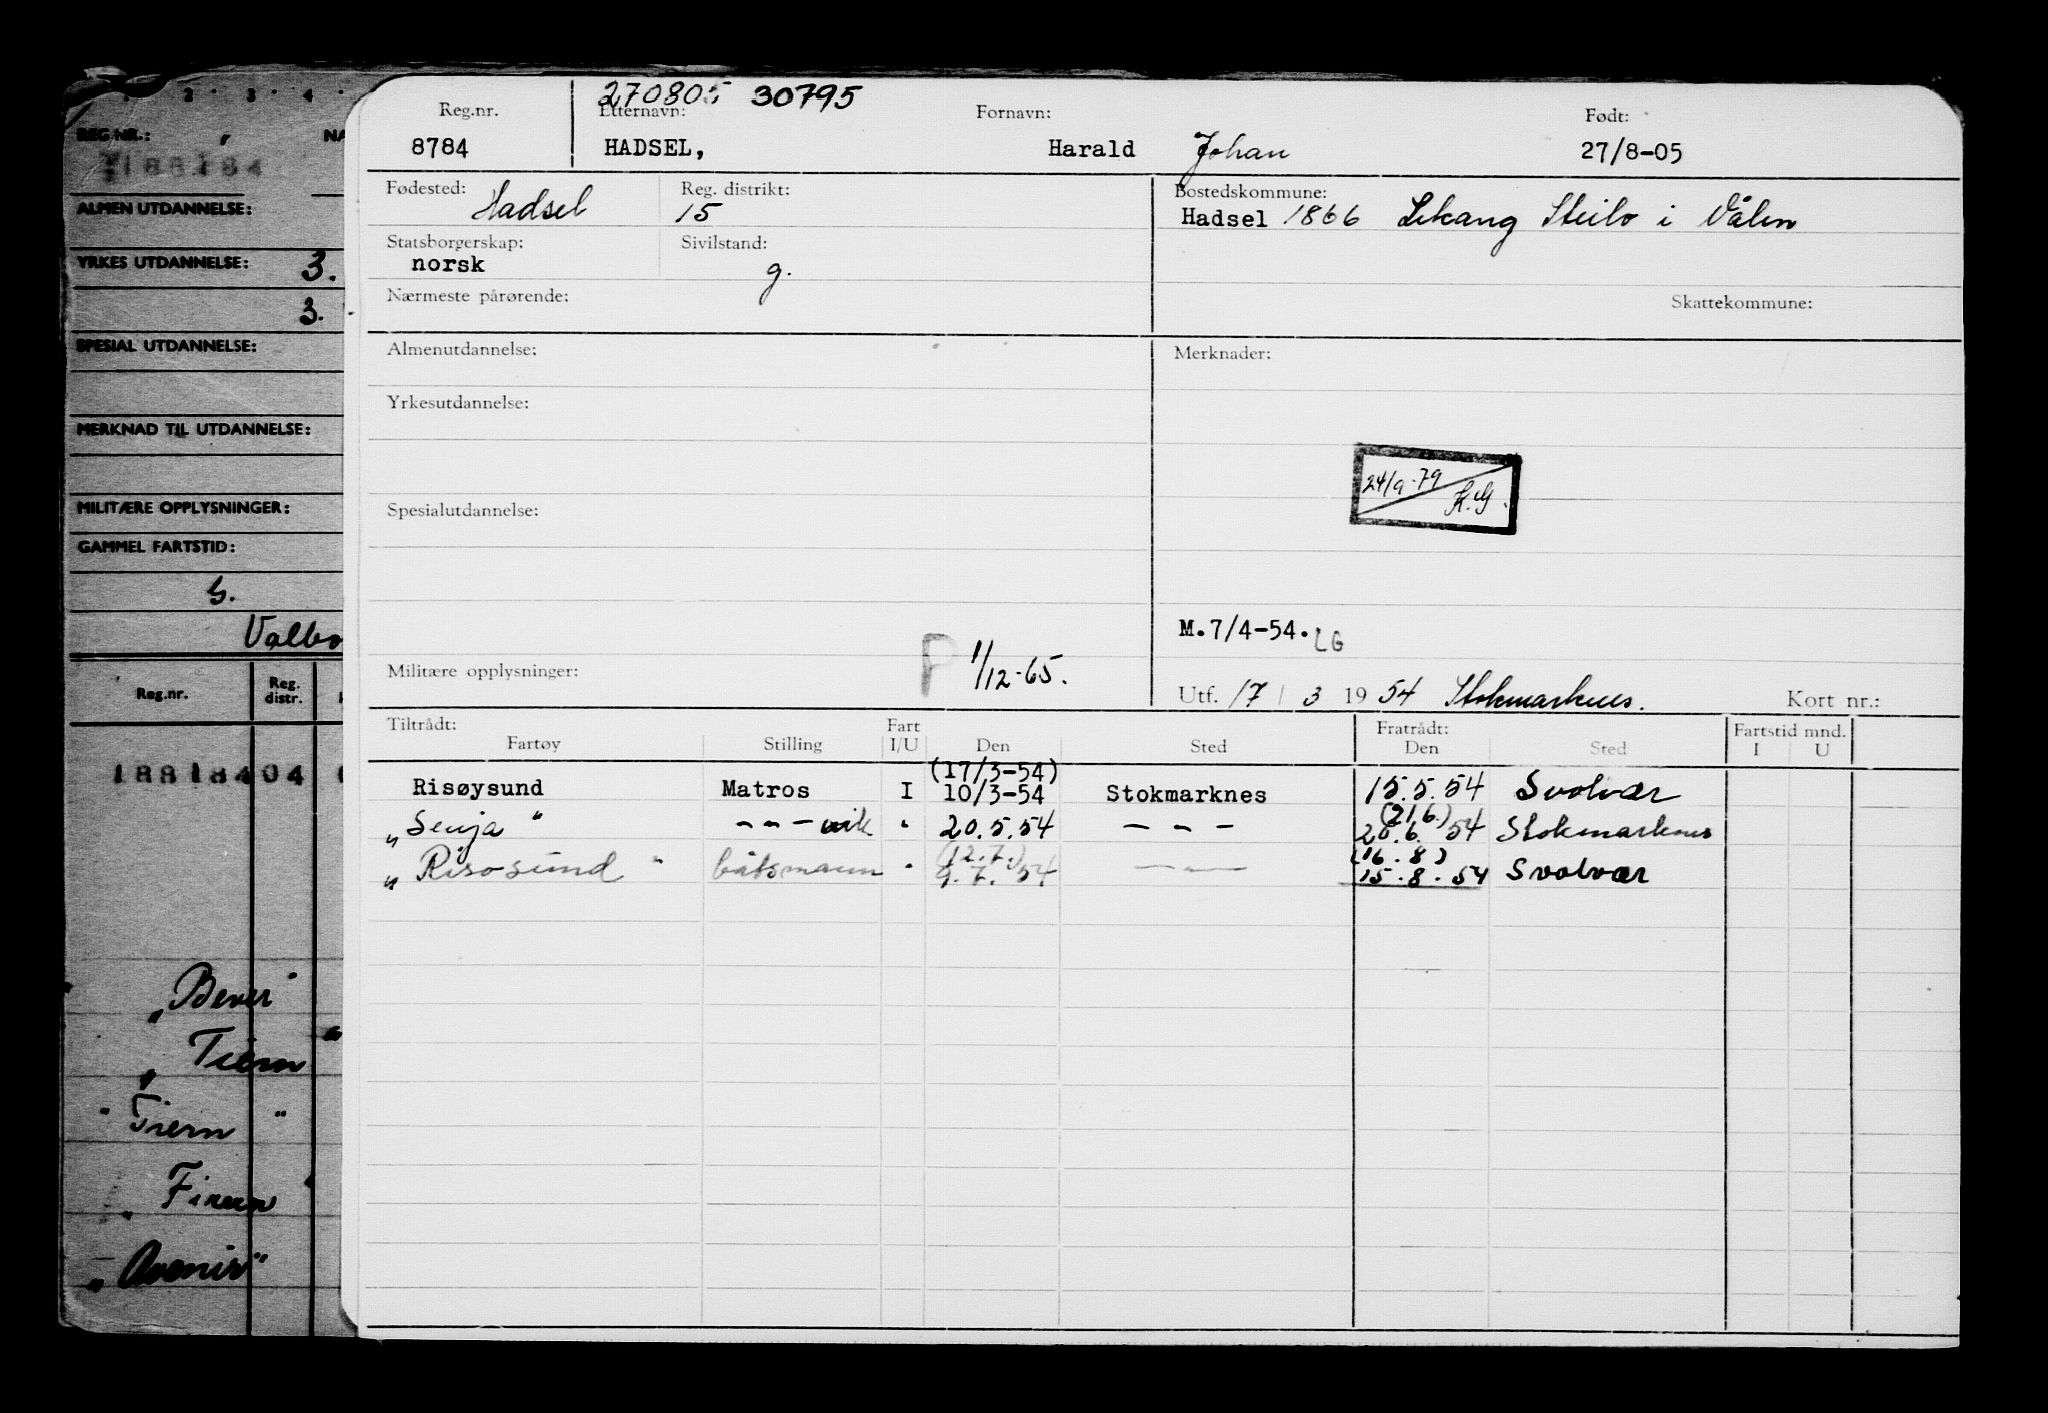 1 2 3 4
REG.NR.: NA
188184
ALMEN UTDANNELSE:
YRKES UTDANNELSE: 3.
3.
SPESIAL UTDANNELSE:
MERKNAD TIL UTDANNELSE:
MILITÆRE OPPLYSNINGER:
GAMMEL FARTSTID:
G.
Valbo
Reg.nr. Reg. distr.
18818404
„Bever"
„Tiern"
"Tiern"
„Avenir"
270805 30795
Reg.nr. Etternavn: Fornavn: Født:
8784 HADSEL, Harald Johan 27/8-05
Fødested: Hadsel Reg. distrikt: 15 Bostedskommune:
Hadsel 1866 Lekang Steilo i Vålen
Statsborgerskap: norsk Sivilstand: g.
Nærmeste pårørende: Skattekommune:
Almenutdannelse: Merknader:
Yrkesutdannelse:
24/9-79 K.G.
Spesialutdannelse:
M.7/4-54. LG
Militære opplysninger: P 1/12-65.
Utf. 17/3 1954 Stokmarknes. Kort nr.:
Tiltrådt: Fart Fratrådt: Fartstid mnd.
Fartøy Stilling I/U Den Sted Den Sted I U
(17/3-54)
Risøysund Matros I 10/3-54 Stokmarknes 15.5.54 Svolvær
(21.6.)
„Senja" -"- vik " 20.5.54 -"- 20.6.54 Stokmarknes
(12.7.) (16.8)
„Risøsund" båtsmann " 9.7.54 -"- 15.8.54 Svolvær